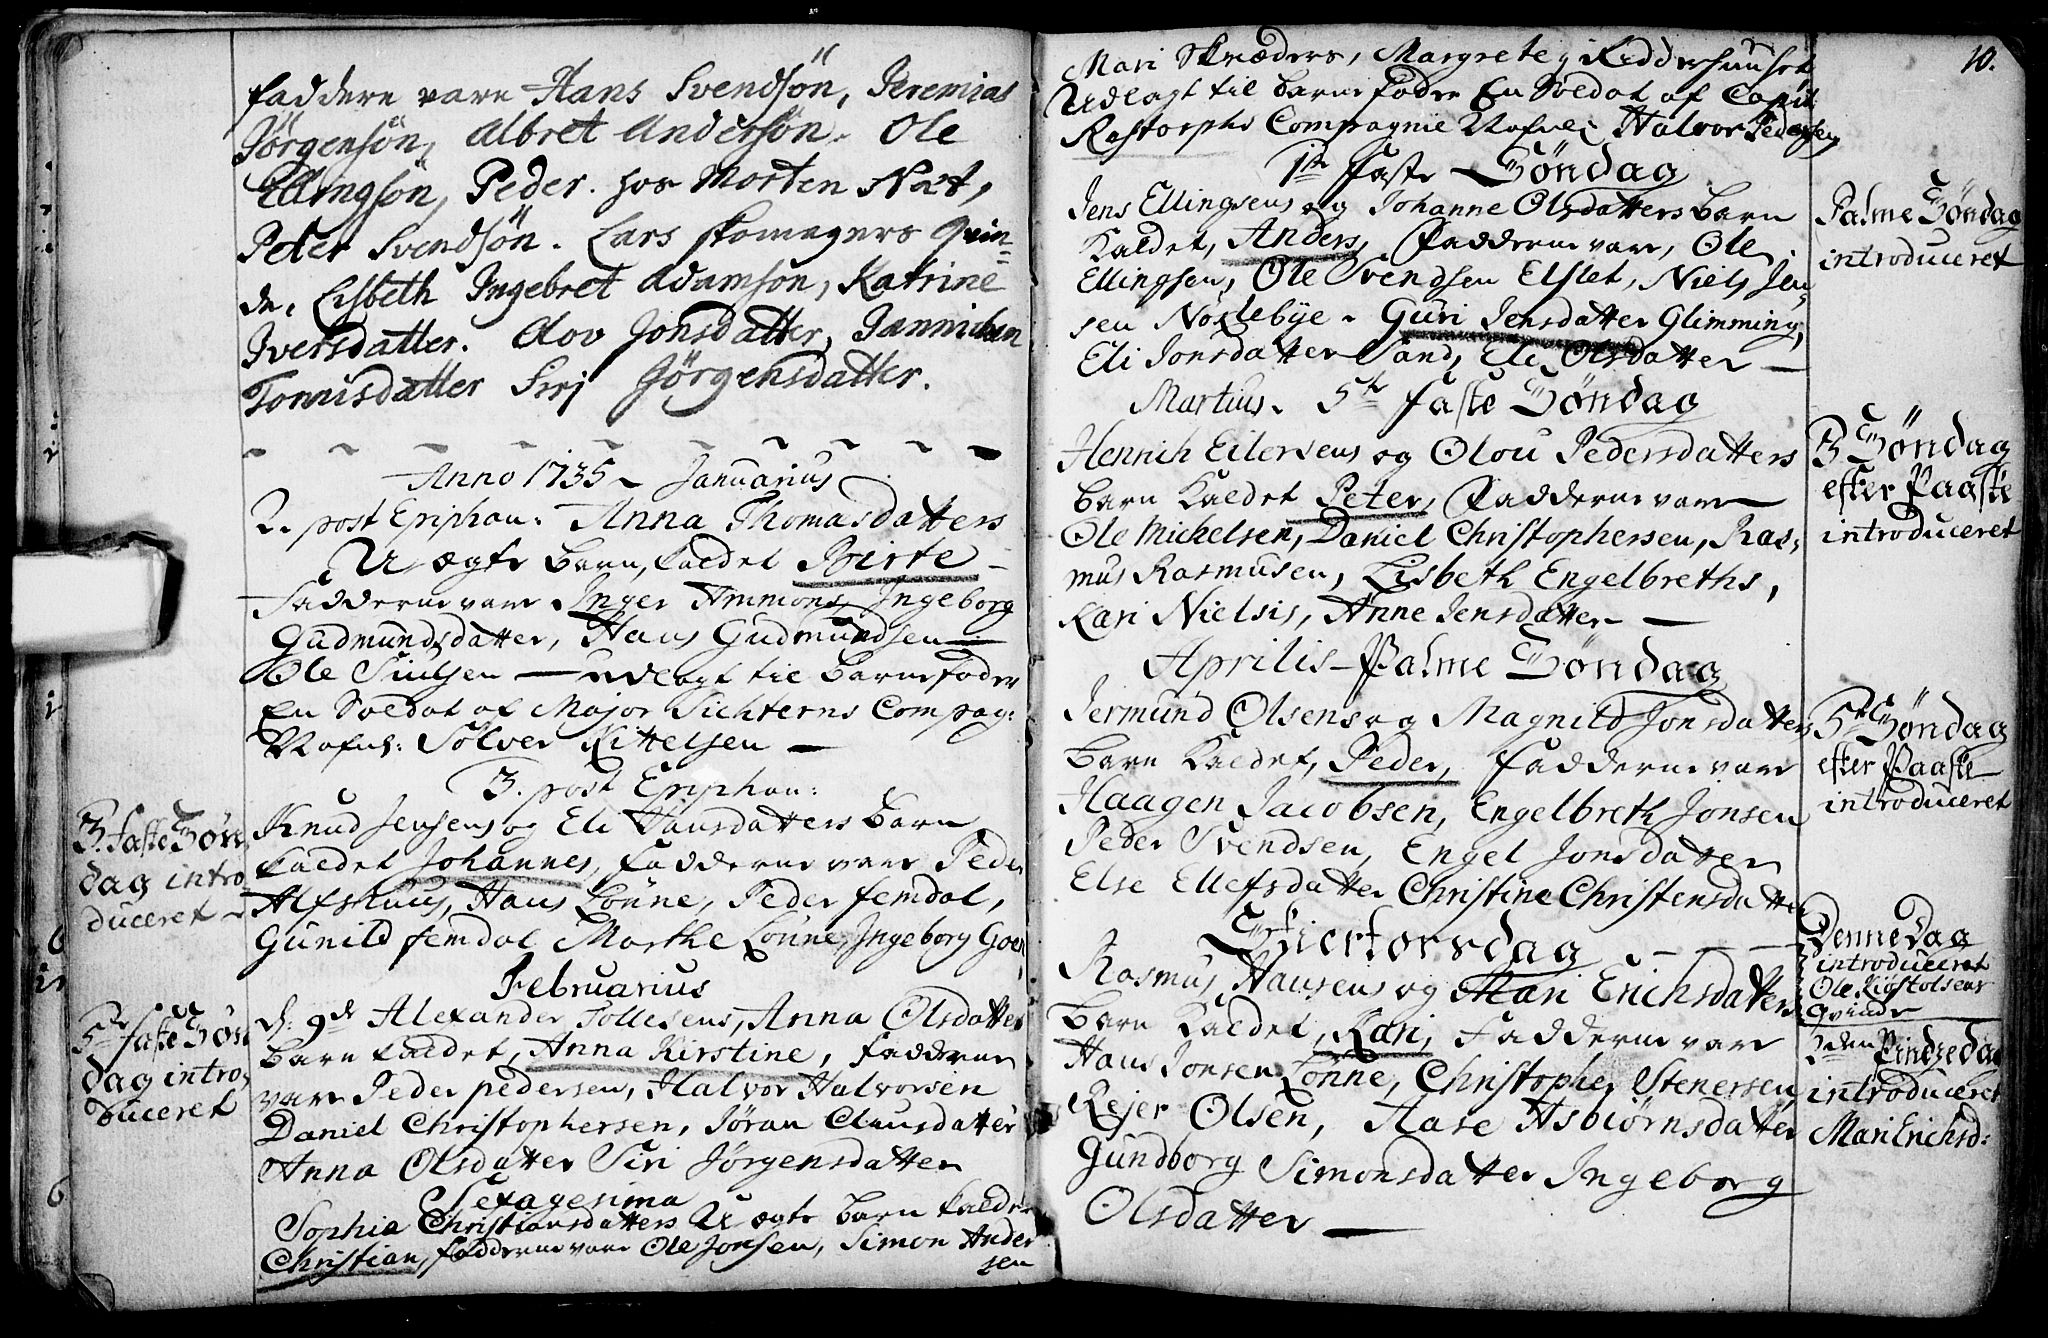 Faddere vare Hans Svendsön, Jeremias
Jörgensön, Albret Andersön. Ole
Ellingsön, Peder. hos Morten Næt,
Peter Svendsön. Lars skomagers Qvin=
de, Lisbeth Ingebret Adamsön, Katrine
Iversdatter. Alov Jonsdatter, Jannichen
Tonnisdatter Sirj Jörgensdatter.
Anno 1735 Januarius
2. post Epiphan: Anna Thomasdatters
U ægte Barn, kaldet Birte
Fadderne vare Inger Ammons, Ingeborg
Gudmundsdatter, Hans Gudmundsen
Ole Siulsen — udlagt til Barnefader
En Soldat af Major Sichterns Compag:
Nafnl: Sölver Kittelsen —
3. post Epiphan:
3. Faste Sön
dag intro-
duceret
Knud Jensens og Eli Hansdatters Barn
kaldet Johannes, Fadderne vare Peder
Alfshuus, Hans Lönne, Peder femdal,
Gunild femdal Marthe Lönne, Ingeborg
Februarius
5te Faste Sön
dag intro-
duceret
d: 9de Alexander Tollesens, Anna Olsdatters
Barn kaldet, Anna Kirstine, Fadderne
vare Peder pedersen, Halvor Halvorsen
Daniel Christophersen, Jöran Clausdatter
Anna Olsdatter Siri Jörgensdatter
Sexagesima
Sophia Christiansdatters U ægte Barn kaldet
Christian, fadderne vare Ole Jonsen, Simon Ander
sen
10.
Mari Skræders, Margrete i Ridderhuuset
Udlagt til Barnefader En Soldat af Capit:
Rastorphs Compagnie Nafnl: Halvor Pedersen
1te Faste Söndag
Jens Ellingsens og Johanne Olsdatters Barn
Kaldet, Anders, Fadderne vare, Ole
Ellingsen, Ole Svendsen Elslet, Niels Jen-
sen Nöslebye. Guri Jensdatter Glimming,
Eli Jonsdatter Sand, Eli Olsdatter —
Palme Söndag
introduceret
Martius. 5te Faste Söndag
Henrich Eilersens og Olou Pedersdatters
Barn Kaldet Peter, Fadderne vare
Ole Mickelsen, Daniel Christophersen, Ras-
mus Rasmusen, Lisbeth Engelbreths,
Kari Nielsis, Anne Jensdatter —
3 Söndag
efter Paaske
introduceret
Aprilis - Palme Söndag
Jermund Olsens og Magnild Jonsdatters
Barn Kaldet, Peder, Fadderne vare
Haagen Jacobsen, Engelbreth Jonsen
Peder Svendsen, Engel Jonsdatter
Else Ellefsdatter Christine Christensdatter
5te Söndag
efter Paaske
introduceret
Skiertorsdag
Rasmus Hansens og Mari Erichsdatters
Barn Kaldet, Kari, Fadderne vare
Hans Jonsen Lönne, Christopher Stenersen
Rejer Olsen, Aase Asbiörnsdatter
Gundborg Simonsdatter Ingeborg
Olsdatter —
Denne Dag
introduceret
Ole
Qvinde
2den Pindsedag
introduceret
Mari Erichsd: